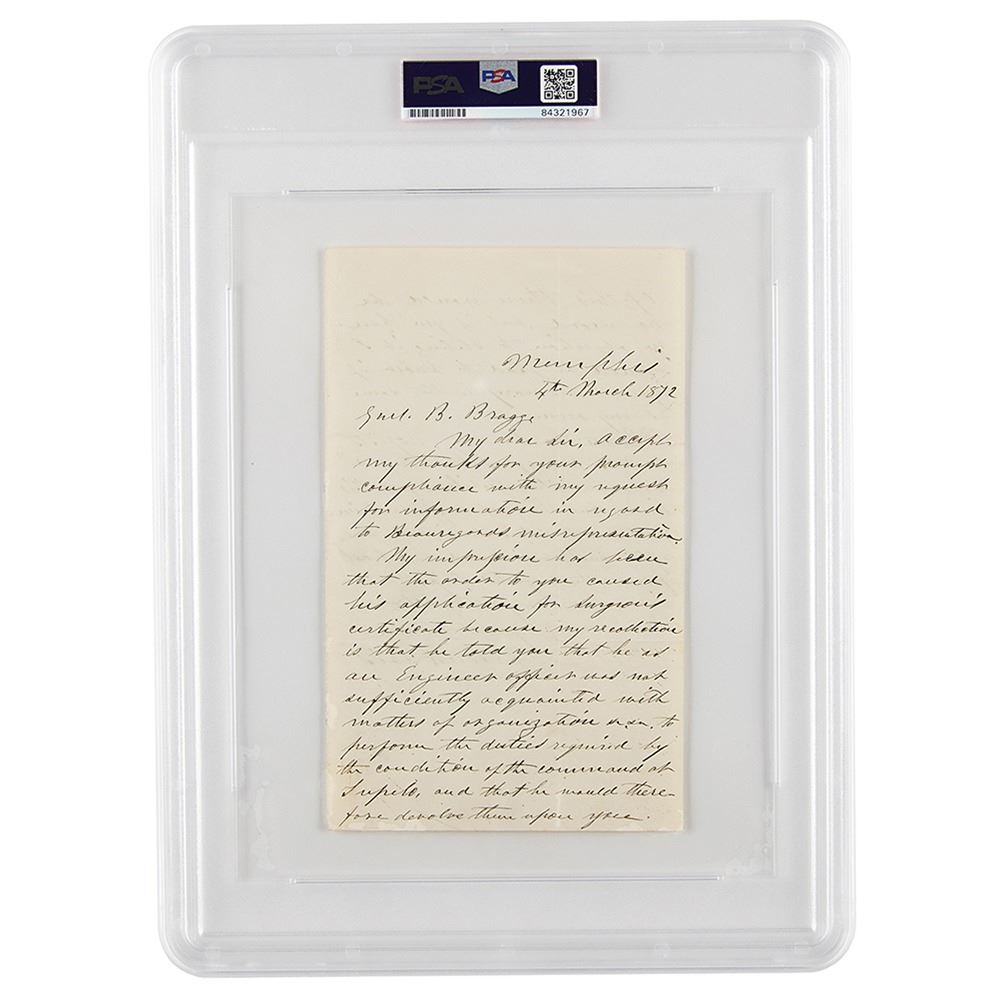 PSA
PSA
84321967
Memphis
4th March 1872
Genl. B. Bragg
My dear Sir, accept
my thanks for your prompt
compliance with my request
for information in regard
to Beauregards misrepresentation.
My impression has been
that the order to you caused
his application for Surgeon's
certificate because my recollection
is that he told you that he as
an Engineer officer was not
sufficiently acquainted with
matters of organization to
perform the duties required by
the condition of the command at
Tupelo, and that he would there-
fore devolve them upon you.